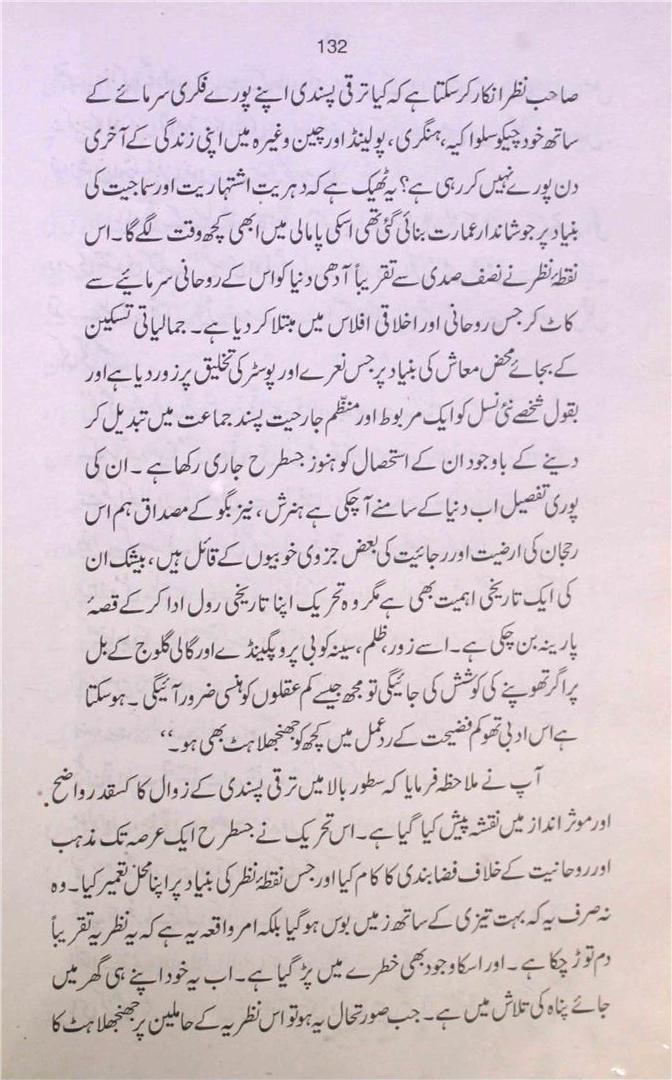 132
صاحب نظر انکار کر سکتا ہے کہ کیا ترقی پسندی اپنے پورے فکری سرمائے کے
ساتھ خود چیکوسلواکیہ، ہنگری، پولینڈ اور چین وغیرہ میں اپنی زندگی کے آخری
دن پورے نہیں کر رہی ہے؟ یہ ٹھیک ہے کہ دہریت اشتہاریت اور سماجیت کی
بنیاد پر جو شاندار عمارت بنائی گئی تھی اسکی پامالی میں ابھی کچھ وقت لگے گا۔ اس
نقطۂ نظر نے نصف صدی سے تقریباً آدھی دنیا کو اس کے روحانی سرمائیے سے
کاٹ کر جس روحانی اور اخلاقی افلاس میں مبتلا کر دیا ہے۔ جمالیاتی تسکین
کے بجائے محض معاش کی بنیاد پر جس نعرے اور پوسٹر کی تخلیق پر زور دیا ہے اور
بقول شخصے نئی نسل کو ایک مربوط اور منظّم جارحیت پسند جماعت میں تبدیل کر
دینے کے باوجود ان کے استحصال کو ہنوز جسطرح جاری رکھا ہے۔ ان کی
پوری تفصیل اب دنیا کے سامنے آ چکی ہے ہنرش، نیز بگو کے مصداق ہم اس
رجحان کی ارضیت اور رجائیت کی بعض جزوی خوبیوں کے قائل ہیں، بیشک ان
کی ایک تاریخی اہمیت بھی ہے مگر وہ تحریک اپنا تاریخی رول ادا کر کے قصۂ
پارینہ بن چکی ہے۔ اسے زور، ظلم، سینہ کوبی پروپگینڈے اور گالی گلوج کے بل
پر اگر تھوپنے کی کوشش کی جائیگی تو مجھ جیسے کم عقلوں کو ہنسی ضرور آئیگی۔ ہو سکتا
ہے اس ادبی تھوکم فضیحت کے ردِ عمل میں کچھ کو جھنجھلاہٹ بھی ہو۔‘‘
آپ نے ملاحظہ فرمایا کہ سطور بالا میں ترقی پسندی کے زوال کا کسقدر واضح
اور موثر انداز میں نقشہ پیش کیا گیا ہے۔ اس تحریک نے جسطرح ایک عرصہ تک مذہب
اور روحانیت کے خلاف فضا بندی کا کام کیا اور جس نقطۂ نظر کی بنیاد پر اپنا محل تعمیر کیا۔ وہ
نہ صرف یہ کہ بہت تیزی کے ساتھ زمیں بوس ہو گیا بلکہ امر واقعہ یہ ہے کہ یہ نظریہ تقریباً
دم توڑ چکا ہے۔ اور اسکا وجود بھی خطرے میں پڑ گیا ہے۔ اب یہ خود اپنے ہی گھر میں
جائے پناہ کی تلاش میں ہے۔ جب صورتحال یہ ہو تو اس نظریہ کے حاملین پر جھنجھلاہٹ کا